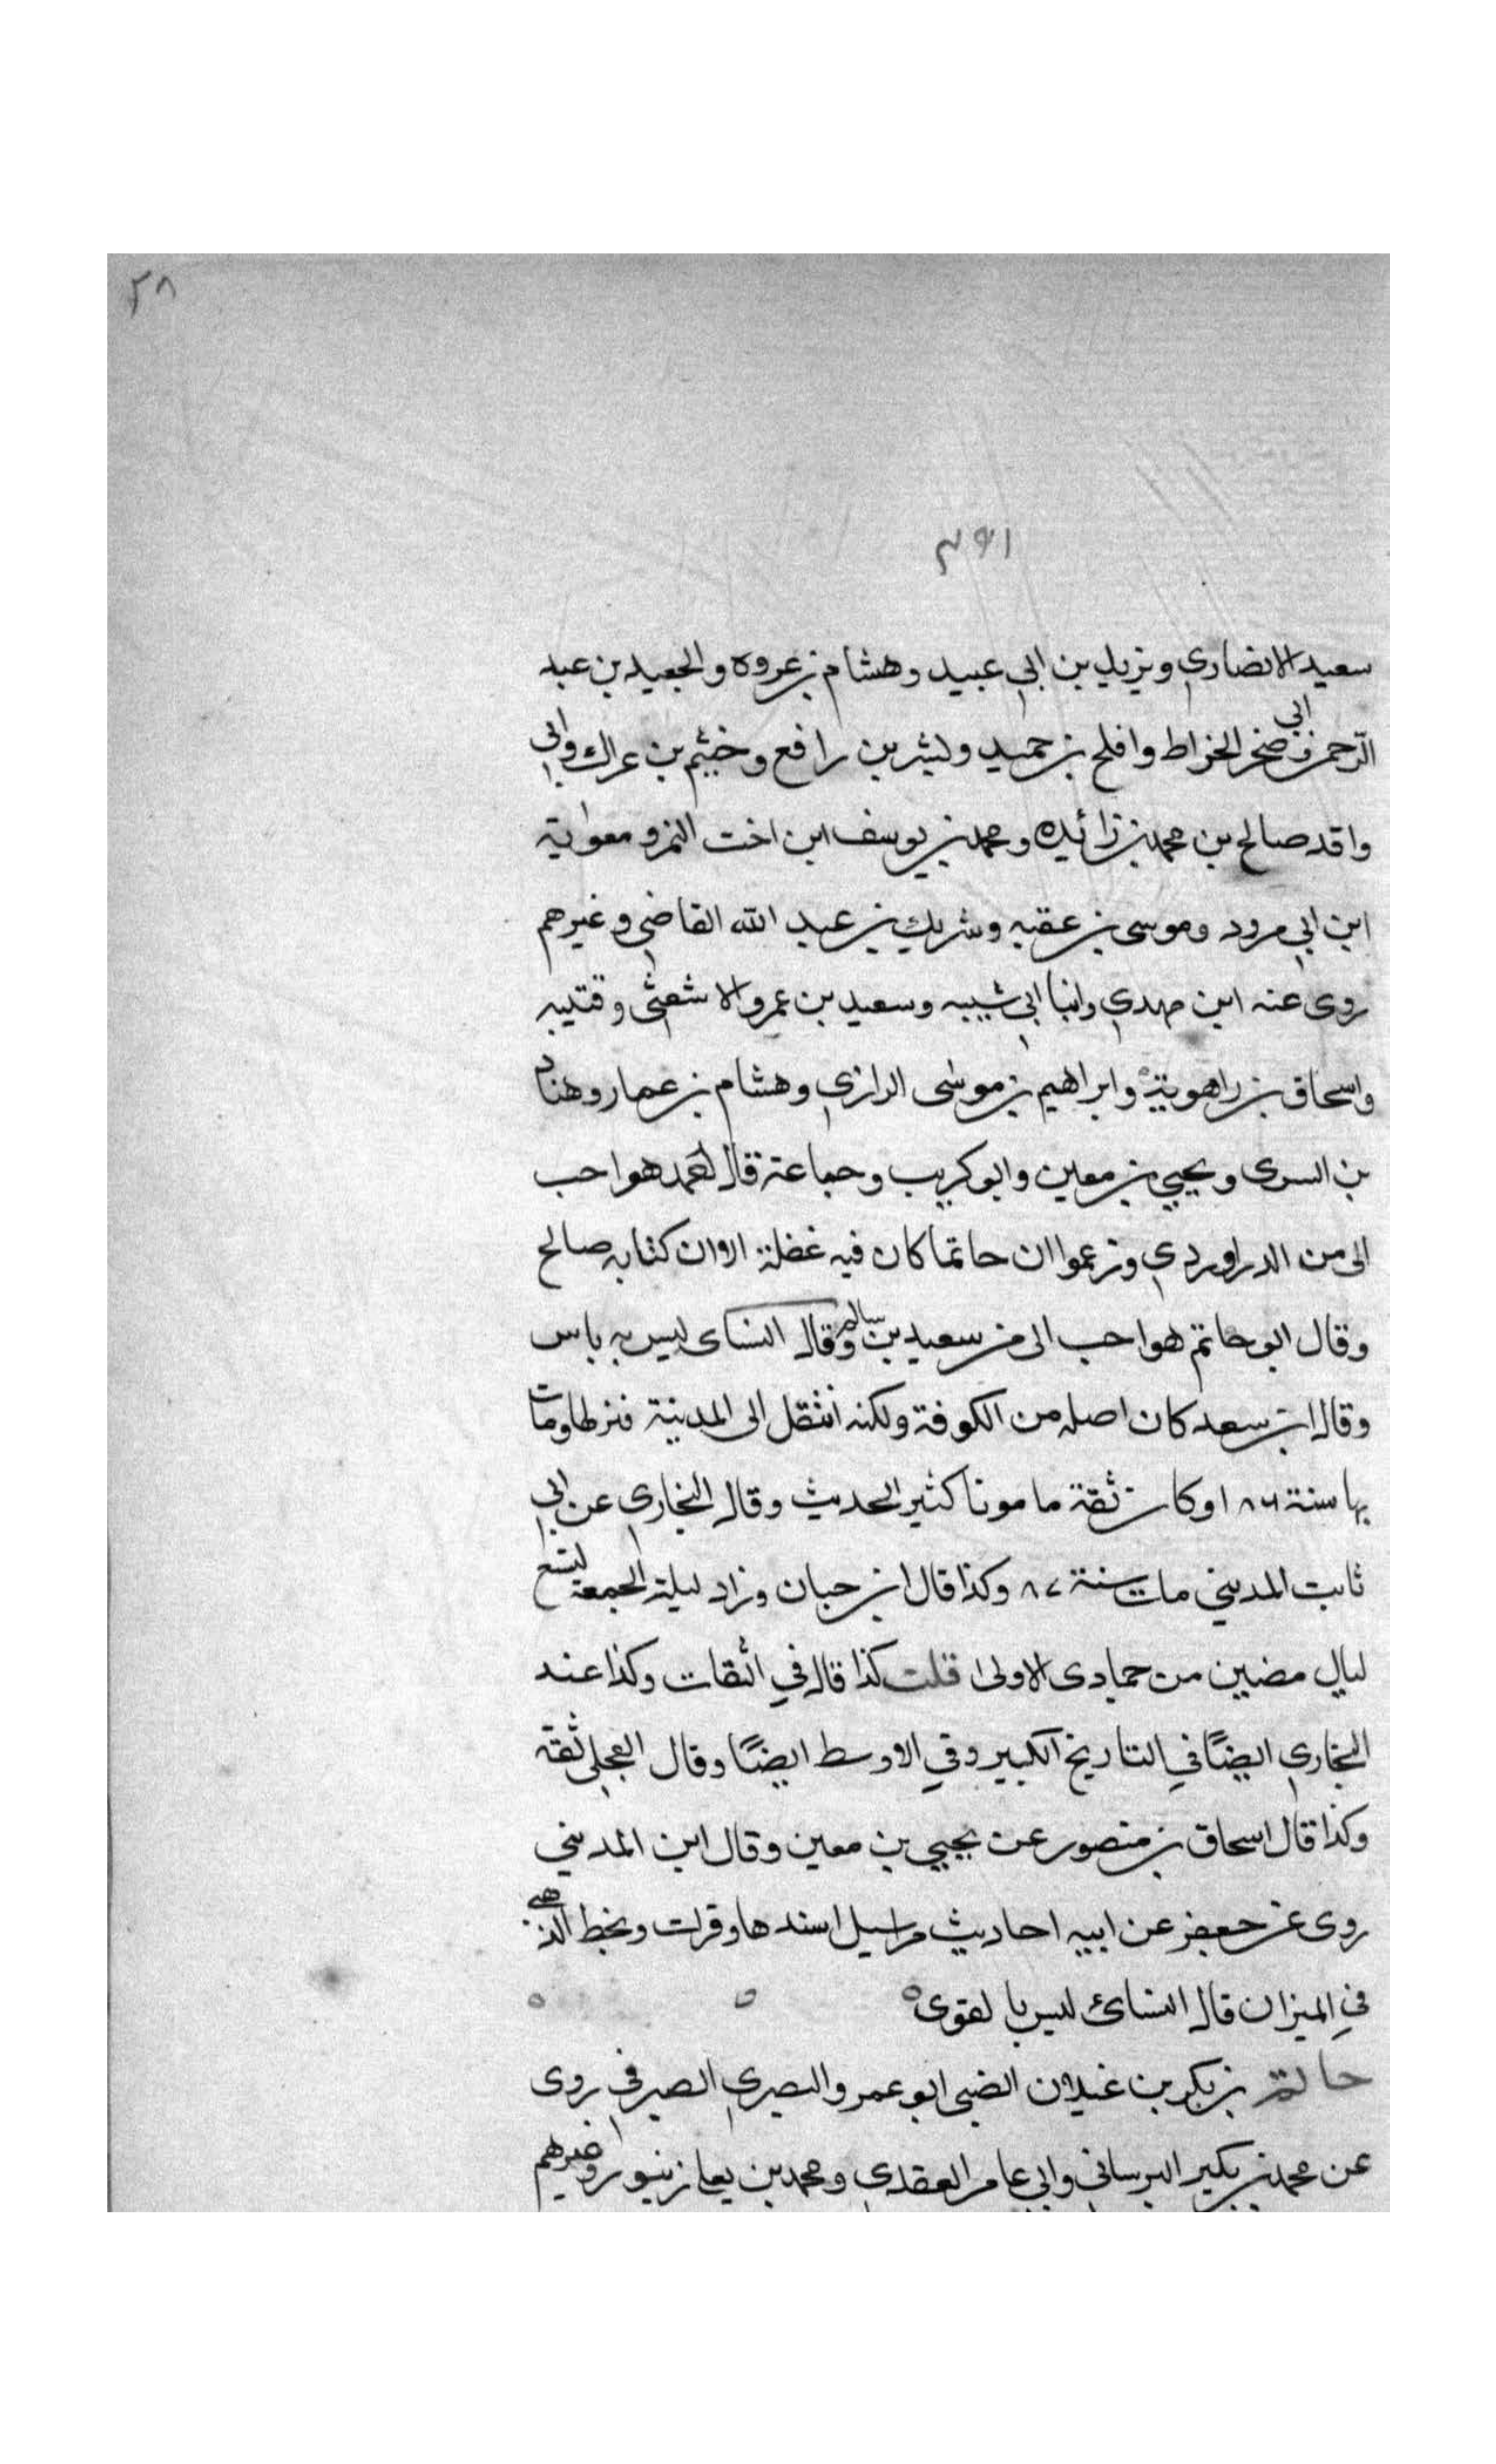 ٢٨
٣٩١
سعيد الانصاري ويزيد بن ابي عبيد وهشام بن عروه والجعيد بن عبد
الرحمن وابي صخر الخراط وافلح بن حميد وبشر بن رافع وخثيم بن عراك وابي
واقد صالح بن محمد بن زائيده ومحمد بن يوسف ابن اخت النمر ومعوية
ابن ابي مرود وموسى بن عقبه وشريك بن عبد الله القاضي وغيرهم
روى عنه ابن مهدي وابنا ابي شيبه وسعيد بن عمرو الاشعثى وقتيبه
واسحاق بن راهوية وابراهيم بن موسى الرازي وهشام بن عمار وهناد
بن السرى ويحيي بن معين وابو كريب وجماعة قال احمد هو احب
الى من الدراوردي وزعموا ان حاتما كان فيه غفلة الا ان كتابه صالح
وقال ابو حاتم هو احب الى من سعيد بن سالم وقال النساى ليس به باس
وقال ابن سعد كان اصله من الكوفة ولكنه انتقل الى المدينة فنزلها ومات
بها سنة ١٨٦ وكان ثقة مامونا كثير الحديث وقال البخاري عن ابي
ثابت المديني مات سنة ٨٧ وكذا قال ابن حبان وزاد ليلة الجمعة لتسع
ليال مضين من جمادى الاولى قلت كذا قال في الثقات وكذا عند
البخاري ايضًا في التاريخ الكبير وفي الاوسط ايضًا وقال العجلي ثقة
وكذا قال اسحاق بن منصور عن يحيي بن معين وقال ابن المديني
روى عن جعفر عن ابيه احاديث مراسيل اسندها وقرات وبخط الذهبي
في الميزان قال النسائ ليس بالقوى
حاتم بن بكر بن غيلان الضبي ابو عمرو البصري الصيرفي روى
عن محمد بن بكير البرساني وابي عامر العقدي ومحمد بن يعلى زنبور وغيرهم